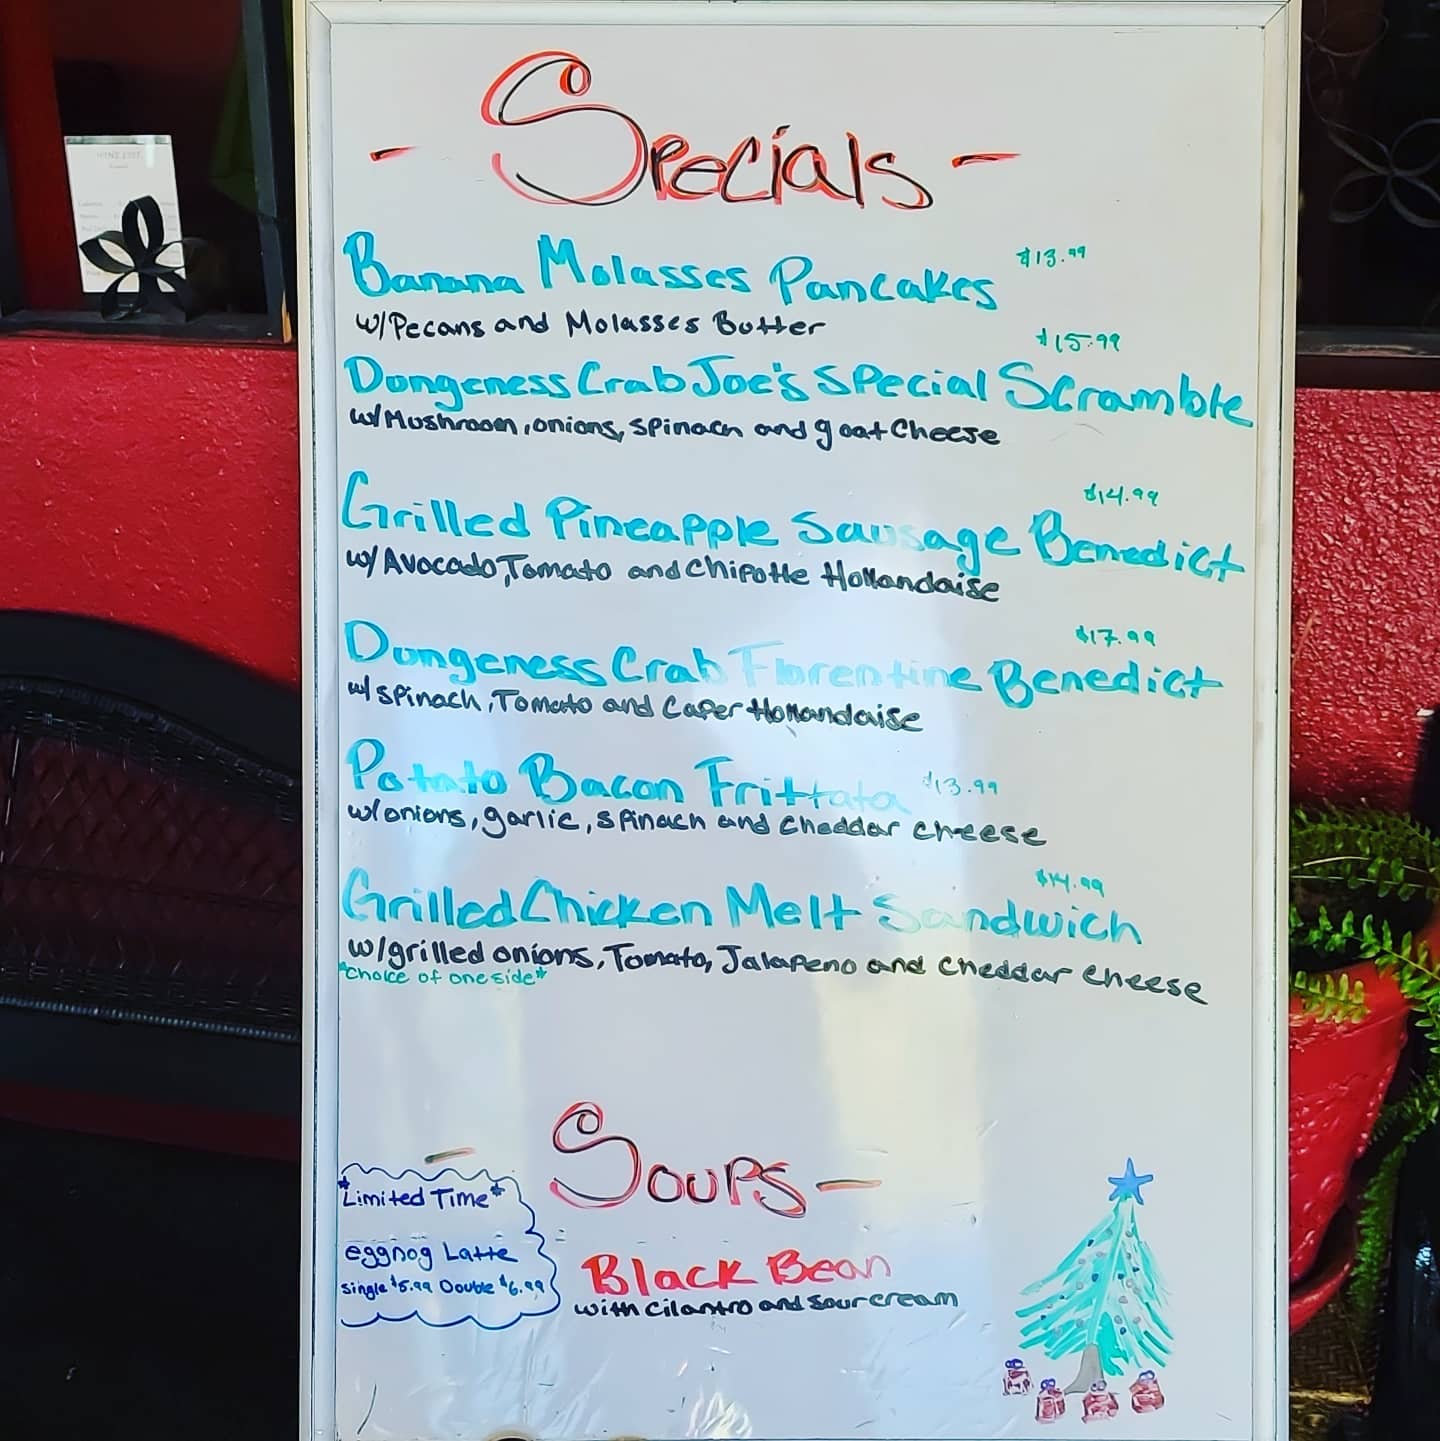 - Specials -
Banana Molasses Pancakes $13.99
w/Pecans and Molasses Butter
$15.99
Dungeness Crab Joe's Special Scramble
w/Mushroom, onions, spinach and goat cheese
$14.99
Grilled Pineapple Sausage Benedict
w/Avocado, Tomato and Chipotle Hollandaise
$17.99
Dungeness Crab Florentine Benedict
w/ spinach, Tomato and Caper Hollandaise
Potato Bacon Frittata $13.99
w/onions, garlic, spinach and cheddar cheese
$14.99
Grilled Chicken Melt Sandwich
w/grilled onions, Tomato, Jalapeno and cheddar cheese
*choice of one side*
- Soups -
*Limited Time*
eggnog Latte
single $5.99 Double $6.99
Black Bean
with cilantro and sour cream